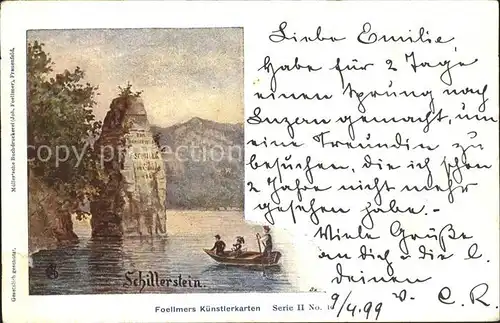 Liebe Emilie
Habe für 2 Tage
einen Sprung nach
Luzern gemacht, um
eine Freundin zu
besuchen, die ich schon
2 Jahre nicht mehr
gesehen habe.-
Viele Grüße
an dich u. die l.
deinen
9/4.99 v. C. R.
Schillerstein.
Foellmers Künstlerkarten Serie II No. 1
Müller'sche Buchdruckerei (Joh. Foellmer), Frauenfeld.
Gesetzlich geschützt.
akpool.co.uk